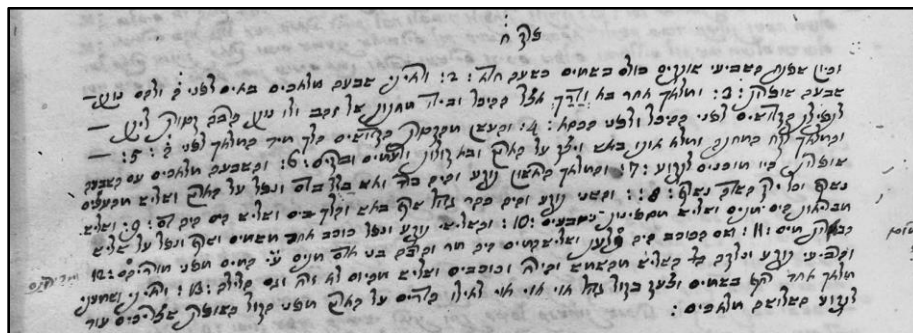 פרק ח
וכיון שפתח השביעי שותקים כולם בשמים כשעה חדא :2: וראיתי שבעה מלאכים באים לפני ה׳ ולהם נותן —
שבעה שופרות :3: ומלאך אחר בא אצל ההיכל ובידו של זהב ולו נותן הרבה קטורת ליתן —
לתפילת הקדושים לפני ההיכל ולפני הכסא :4: והעשן מהקטורת הקדושים הלך מיד המלאך לפני ה׳ :5: —
והמלאך לקח המחתה ומלא אותו באש על הארץ ובא קולות ורעמים וברקים :6: והשבעה מלאכים עם השבעה
שופרות היו מוכנים לתקוע :7: והמלאך הראשון תוקע והיה ברד ואש בדם ונפל על הארץ ושליש מהעצים
נשרף וכל ירק הארץ נשרף :8: והשני תוקע והיה כהר גדול שרף באש והלך בים ושליש הים היה דם :9: ושליש
הים מתים ושליש מהספינות נטבעים :10: והשלישי תוקע ונפל כוכב אחד משמים ושרף ונפל על שליש
מים :11: ושם הכוכב היה לענה ושליש המים היה מר והרבה בני אדם מתים ע״י המים מפני :12
והרביעי תוקע השליש מהשמש והירח והכוכבים ושליש מהיום לא זרח וגם הלילה :13: וראיתי ושמעתי
מלאך אחד בשמים וצעק בקול גדול אוי אוי אוי לאילו הדרים על הארץ מפני הקול השופרות שצריכים עוד
לתקוע השלשה מלאכים :